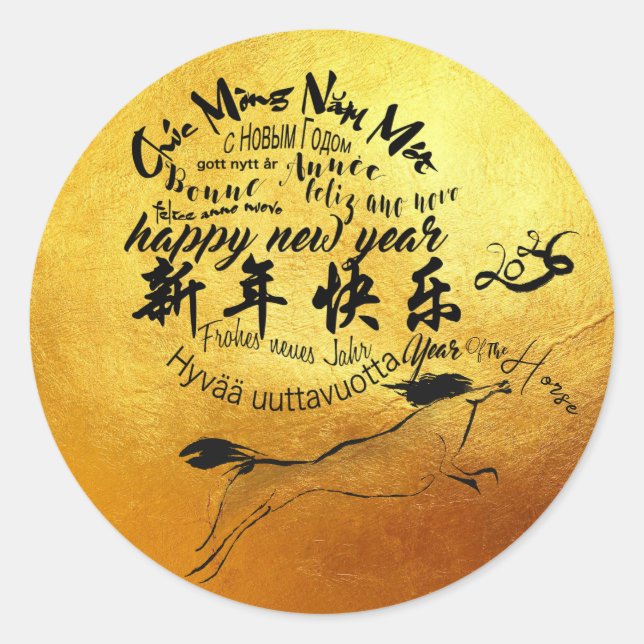 Chúc Mừng Năm Mới
с Новым Годом
gott nytt år
Bonne Année
feliz ano novo
felice anno nuovo
happy new year
2026
新年快乐
Frohes neues Jahr
Year Of The Horse
Hyvää uuttavuotta